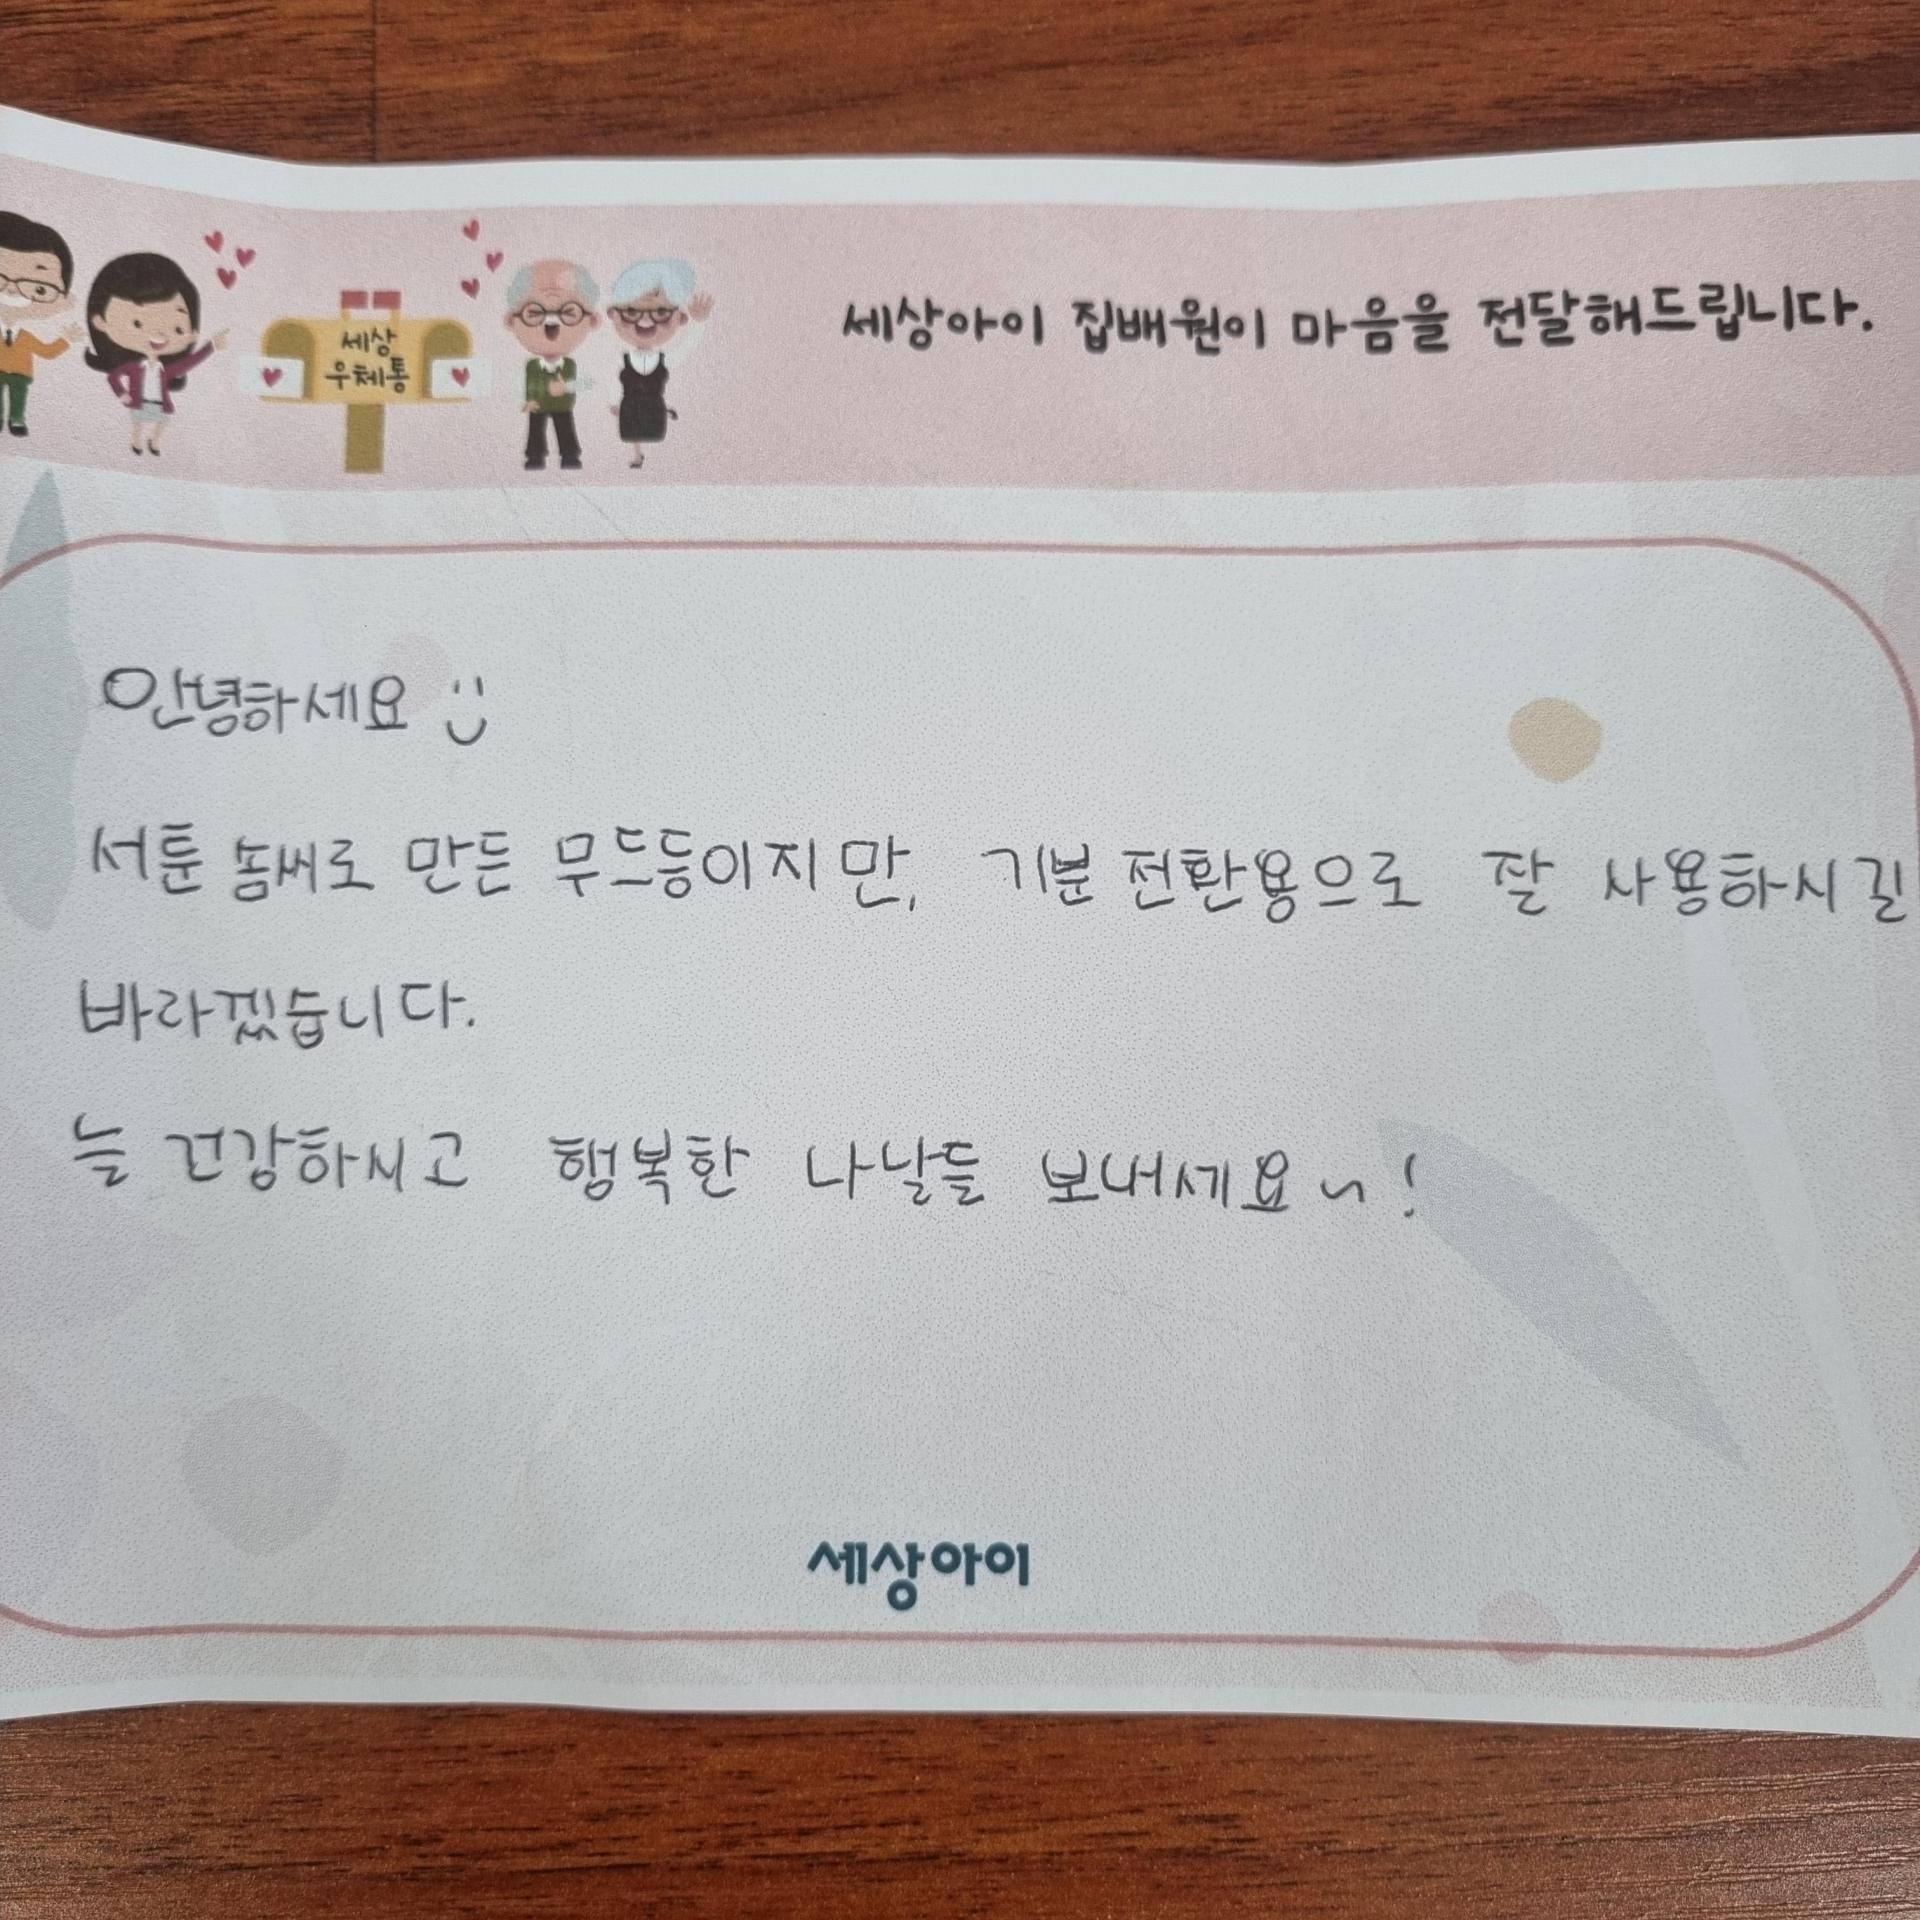 세상
우체통
세상아이 집배원이 마음을 전달해드립니다.
안녕하세요 :)
서툰 솜씨로 만든 무드등이지만, 기분 전환용으로 잘 사용하시길
바라겠습니다.
늘 건강하시고 행복한 나날들 보내세요~!
세상아이